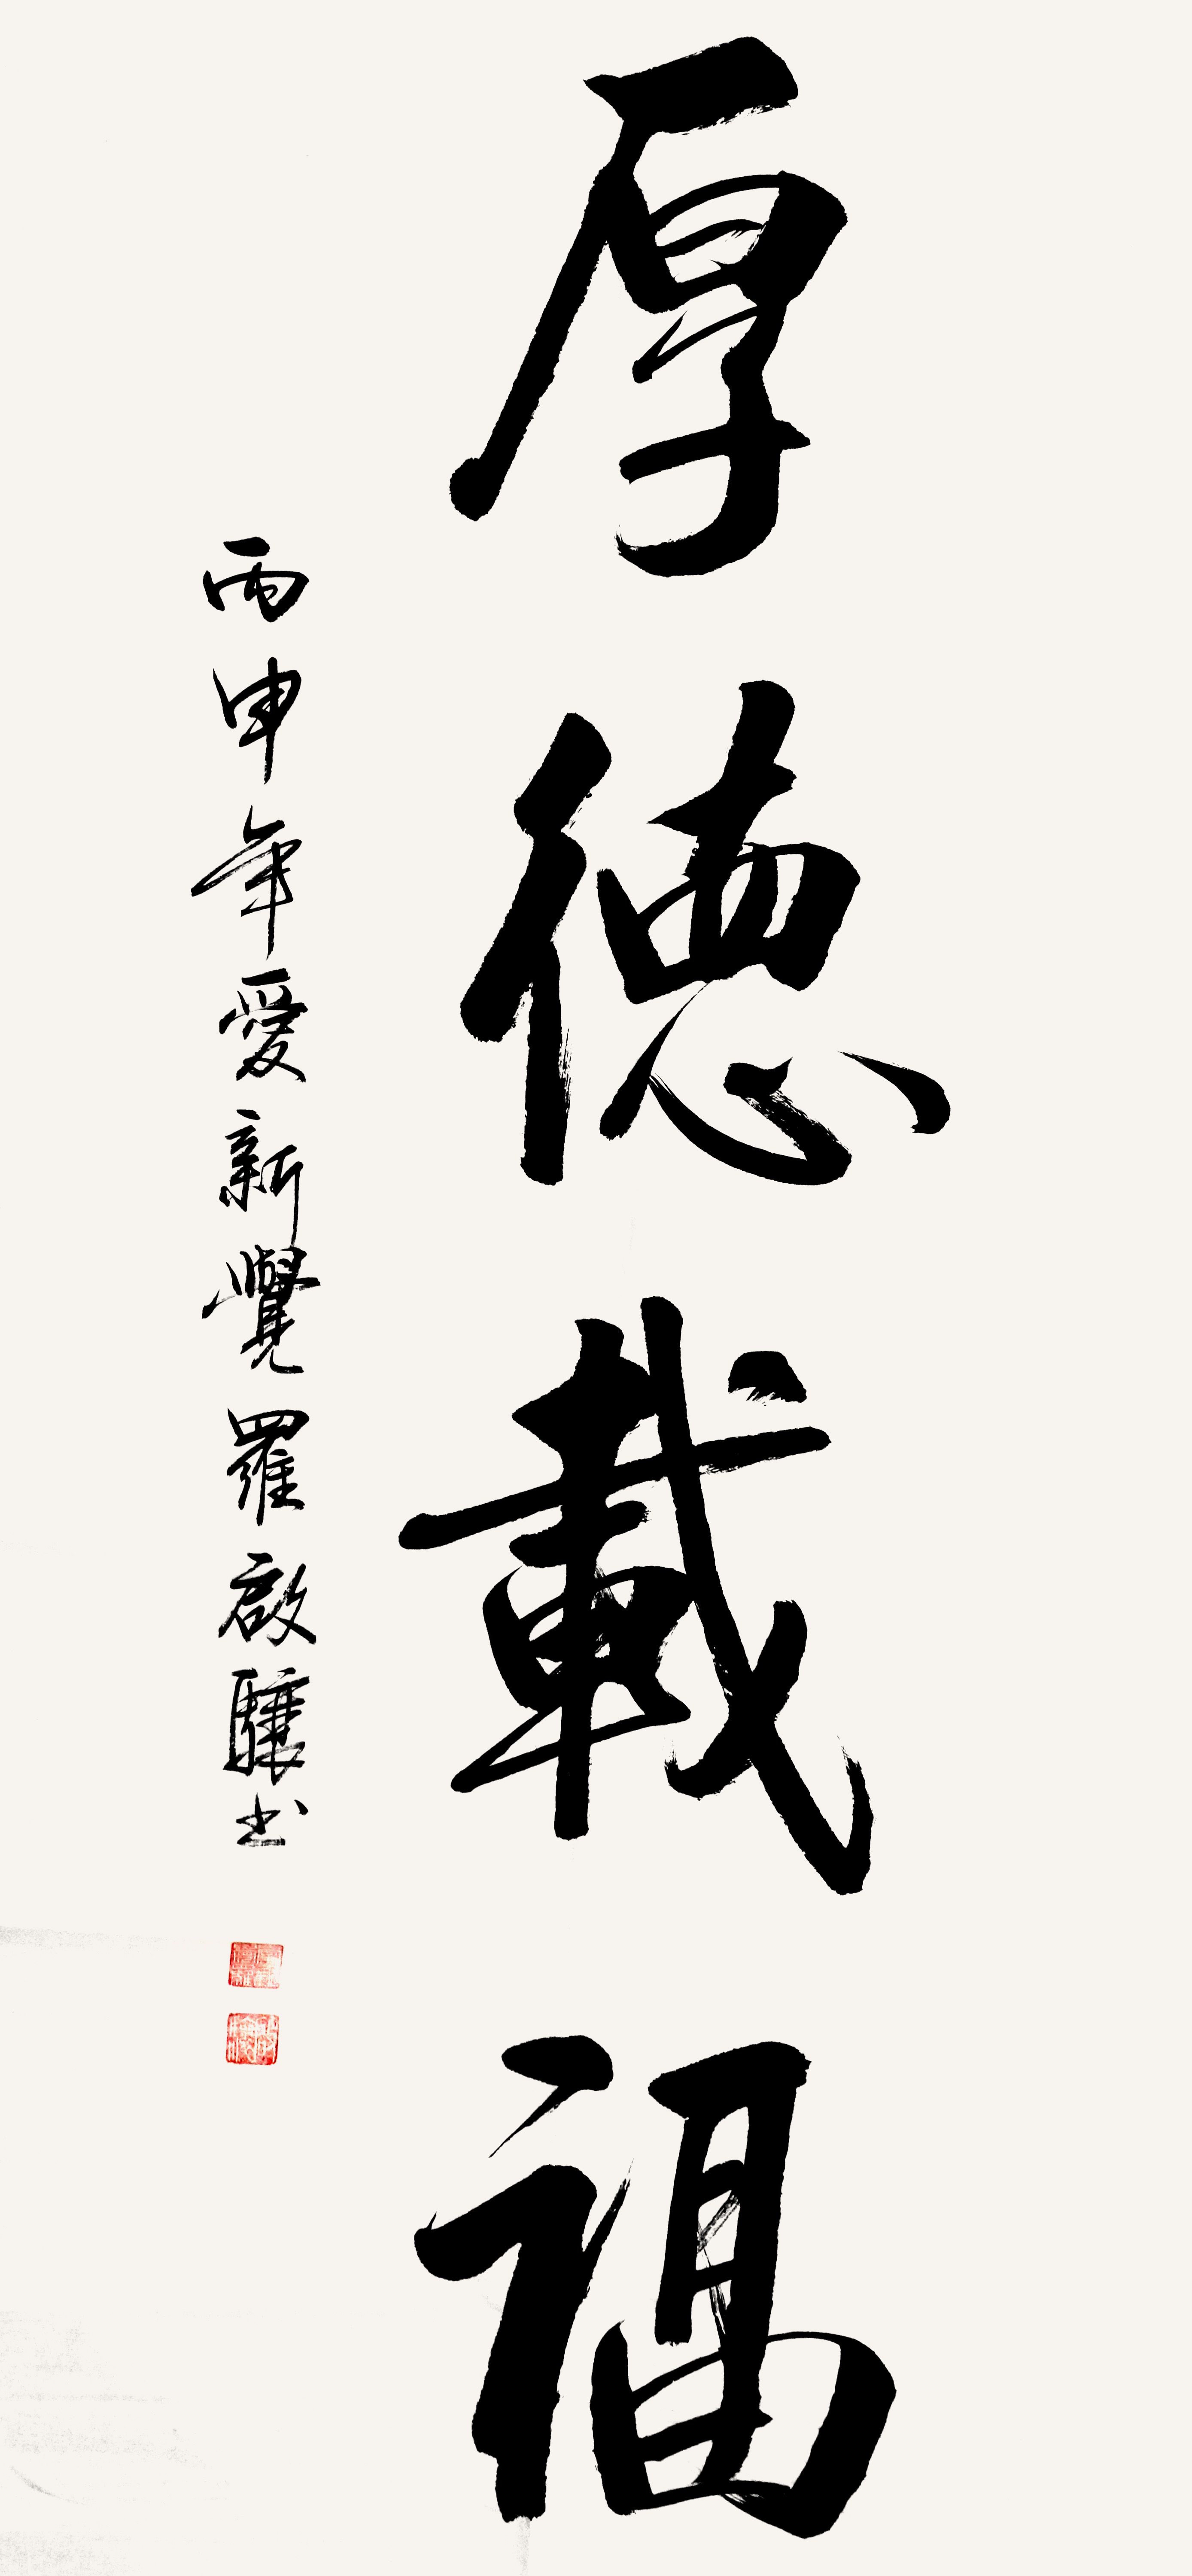 厚德載福
丙申年愛新覺羅啟驤书